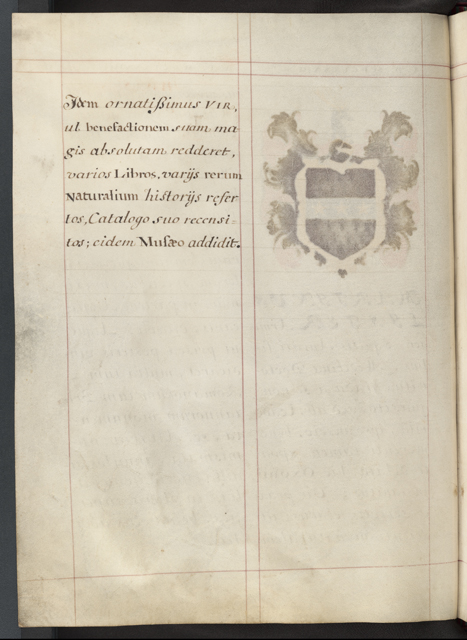 Idem ornatissimus VIR,
ut benefactionem suam ma-
gis absolutam redderet,
varios Libros, varijs rerum
Naturalium historijs refer-
tos, Catalogo suo recensi-
tos; eidem Musæo addidit.